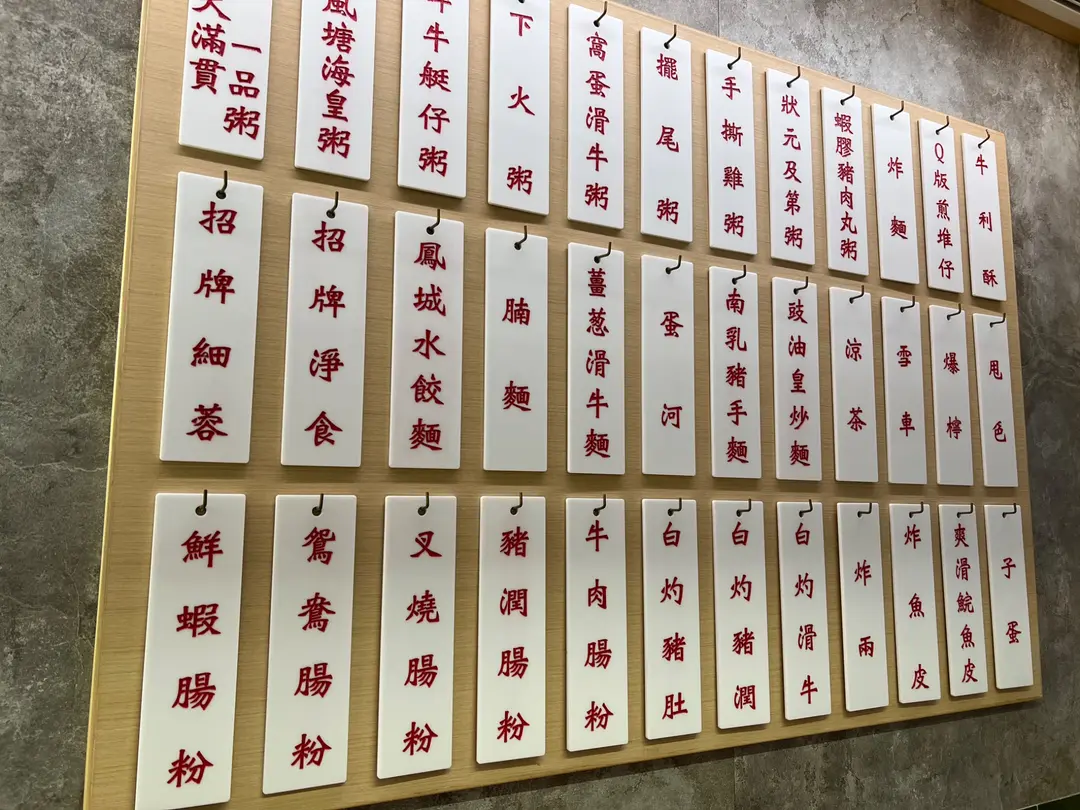 大滿貫
一品粥
風塘海皇粥
牛艇仔粥
下火粥
窩蛋滑牛粥
擺尾粥
手撕雞粥
狀元及第粥
蝦膠豬肉丸粥
炸麵
Q版煎堆仔
牛利酥
招牌細蓉
招牌淨食
鳳城水餃麵
腩麵
薑葱滑牛麵
蛋河
南乳豬手麵
豉油皇炒麵
涼茶
雪車
爆檸
甩色
鮮蝦腸粉
鴛鴦腸粉
叉燒腸粉
豬潤腸粉
牛肉腸粉
白灼豬肚
白灼豬潤
白灼滑牛
炸兩
炸魚皮
爽滑鯇魚皮
子蛋